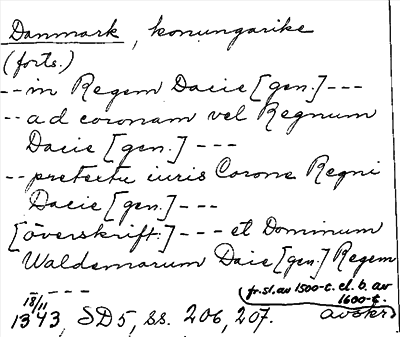 Danmark, konungarike
(forts.)
-- in Regem Dacie [gen.] ---
-- ad coronam vel Regnum
Dacie [gen.] ---
-- pretextu iuris Corone Regni
Dacie [gen.] ---
[överskrift:] --- et Dominum
Waldemarum Dacie [gen.] Regem
---
(fr. sl. av 1500-t. el. b. av
1600-t.
18/11
1343, SD5, ss. 206, 207. avskr)